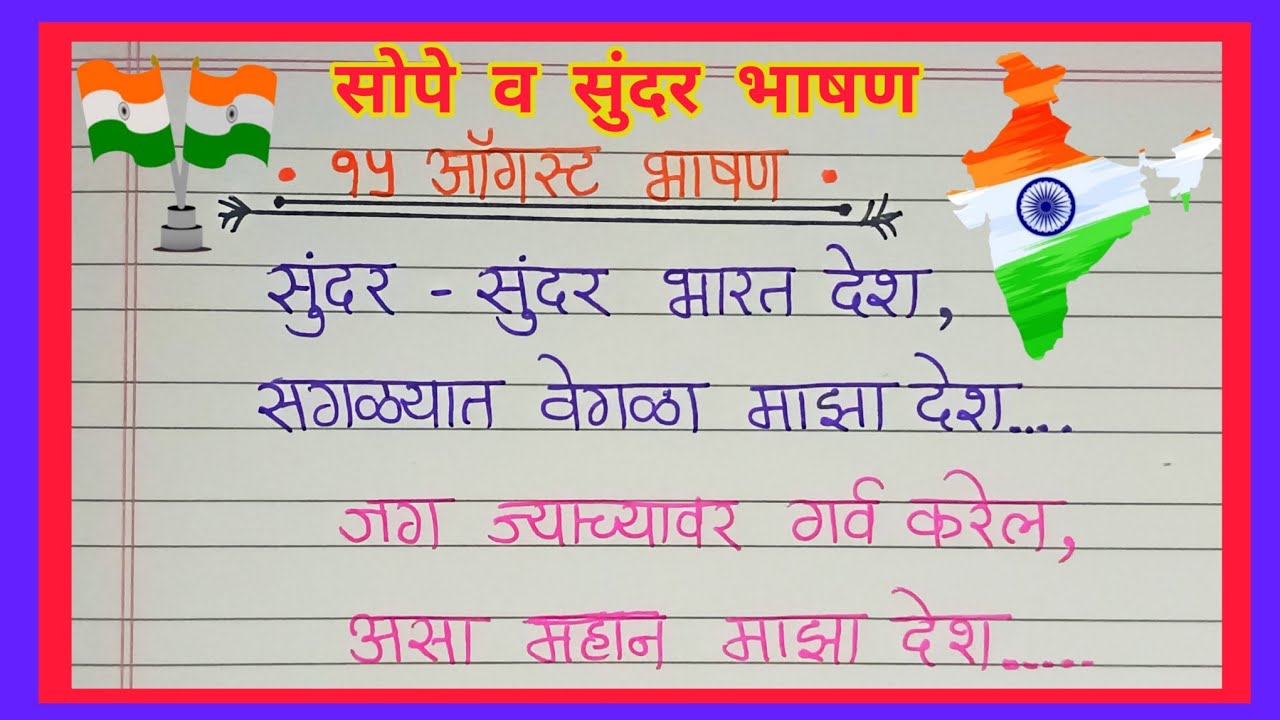 सोपे व सुंदर भाषण
• १५ ऑगस्ट भाषण •
सुंदर - सुंदर भारत देश,
सगळ्यात वेगळा माझा देश....
जग ज्याच्यावर गर्व करेल,
असा महान माझा देश.....